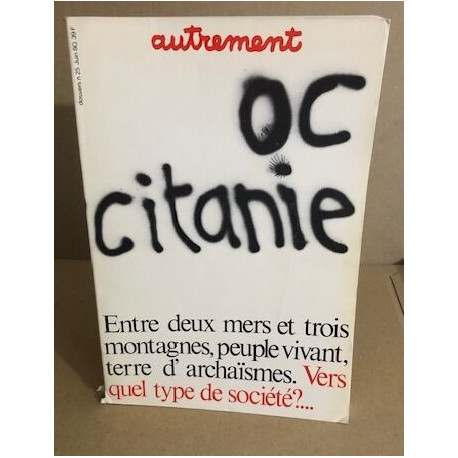 dossiers n 25 Juin 80 39F
autrement
oc
citanie
Entre deux mers et trois
montagnes, peuple vivant,
terre d'archaïsmes. Vers
quel type de société?...